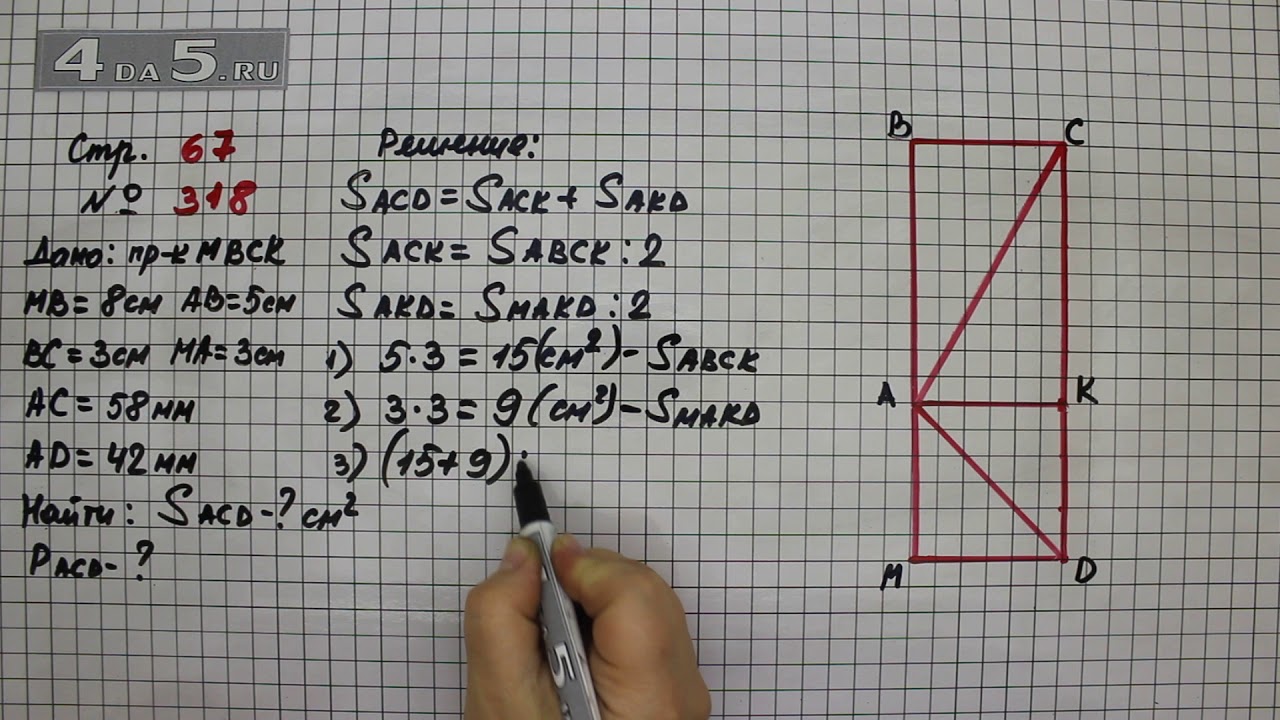 4DA5.RU
Стр. 67
№ 318
Дано: пр-к МВСК
МВ = 8см АВ = 5см
ВС = 3см МА = 3см
АС = 58мм
АD = 42мм
Найти: SACD - ? см²
PACD - ?
Решение:
SACD = SACK + SAKD
SACK = SABCK : 2
SAKD = SMAKD : 2
1) 5 · 3 = 15(см²) - SABCK
2) 3 · 3 = 9 (см²) - SMAKD
3) (15 + 9) :
B
C
A
K
M
D
5